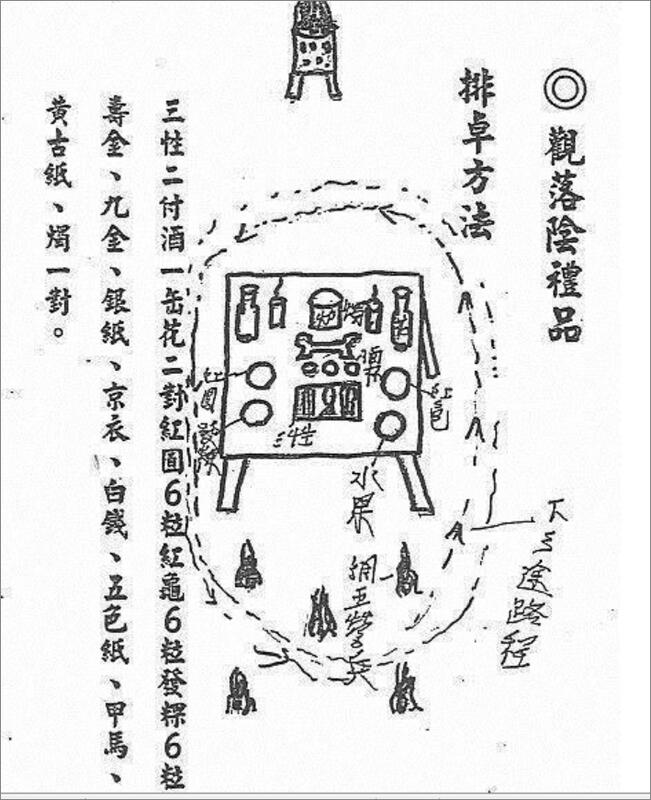 ◎觀落陰禮品
排卓方法
爐
燭
花
紅圓
發粿
三牲
紅龜
水果
綢五營兵
下三途路程
三性二付酒一缶花二對紅圓6粒紅龜6粒發粿6粒
壽金、九金、銀紙、京衣、白錢、五色紙、甲馬、
黃古紙、燭一對。